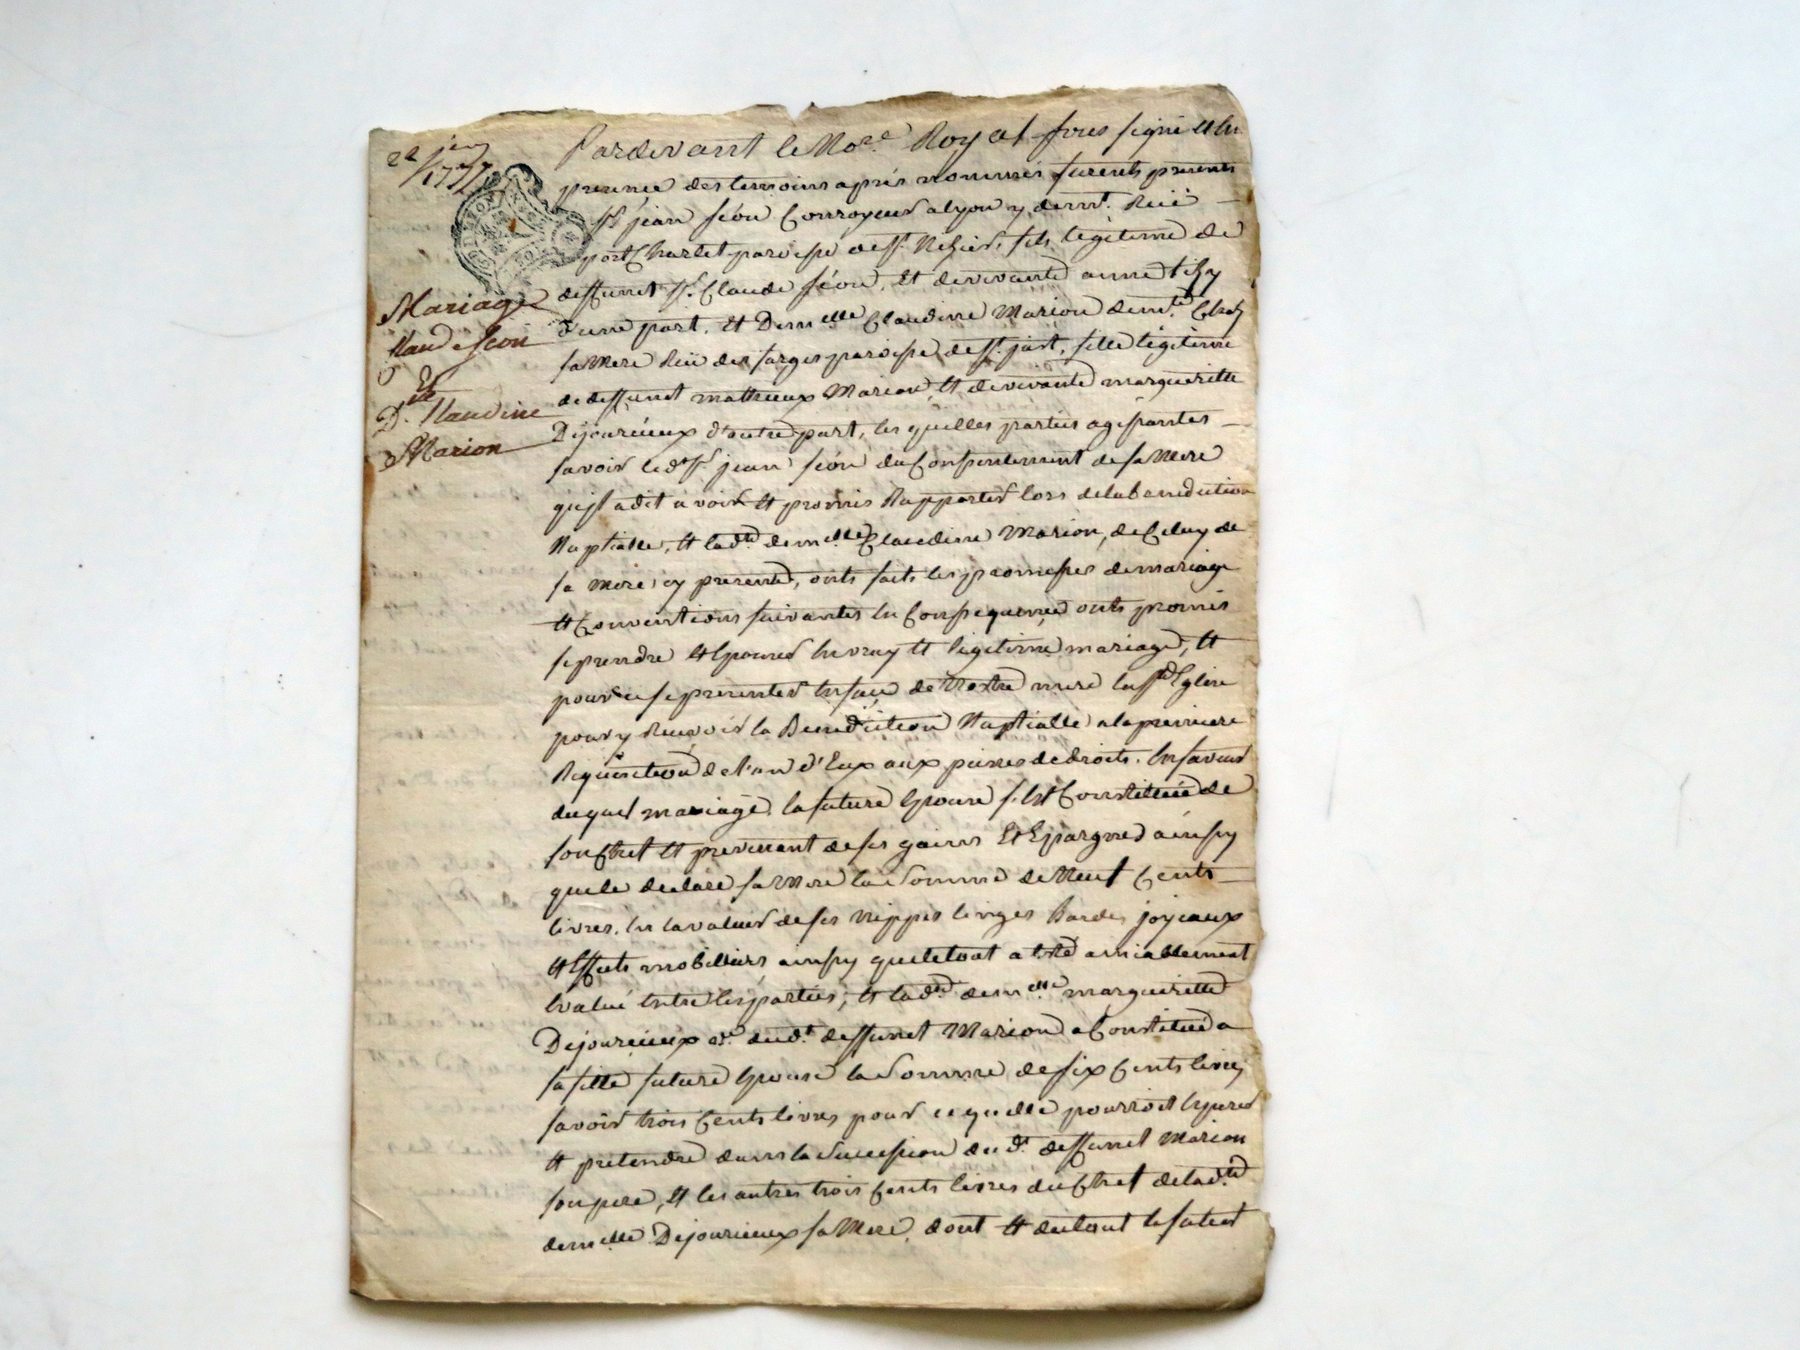 22 janv
1777
Mariage
Claude Seon
Et
Dlle. Claudine
Marion
Pardevant le Nore. Royal sous signé et en
presence des temoins aprés nommés furents presents
sr. jean séon Corroyeur a lyon y demt. Ruë
port Charlet paroisse de st. Nizier, fils légitime de
deffunct sr. Claude séon, et de vivante anne tizy
d'une part, Et Demelle Claudine Marion demte. Chez
sa Mere Ruë des farges paroisse de st. just, fille légitime
de deffunct mathieux Marion, et de vivante margueritte
Dejourieux d'autre part, les quelles parties agissantes
savoir le dt. sr. jean séon du Consentement de sa Mere
qu'jl a dit avoir et promis Rapporter lors de la benediction
Nuptialle, et la dte. demelle Claudine Marion, de Celuy de
sa mere, cy presente, onts faits les promesses de mariage
et Conventions suivantes En Consequence onts promis
se prendre et Epouser En vray et légitime mariage, et
pour ce se presenter En face de Nostre mere la ste. Eglise
pour y Recevoir la Benediction Nuptialle a la premiere
Requisition de l'un d'Eux aux peines de droits. En faveur
du quel mariage la future Epouse s'Est Constituée de
son Chef et provenant de ses gains Et Epargnes ainsy
que le declare sa Mere la Somme de Neuf Cents
livres, En la valeur de ses Nippes linges hardes joyeaux
et Effects mobilliairs ainsy que le tout a Eté amiablement
Evalué Entre les parties, et la dte. demelle. margueritte
Dejourieux ve. du dt. deffunct Marion a Constitué a
sa fille future Epouse la Somme de six Cents livres
savoir trois Cents livres pour ce quelle pourroit Esperer
et pretendre dans la Succession du dt. deffunct Marion
son pere, et les autres trois Cents livres du Chef de la dte.
demelle Dejourieux sa Mere, dont et du tout le futur